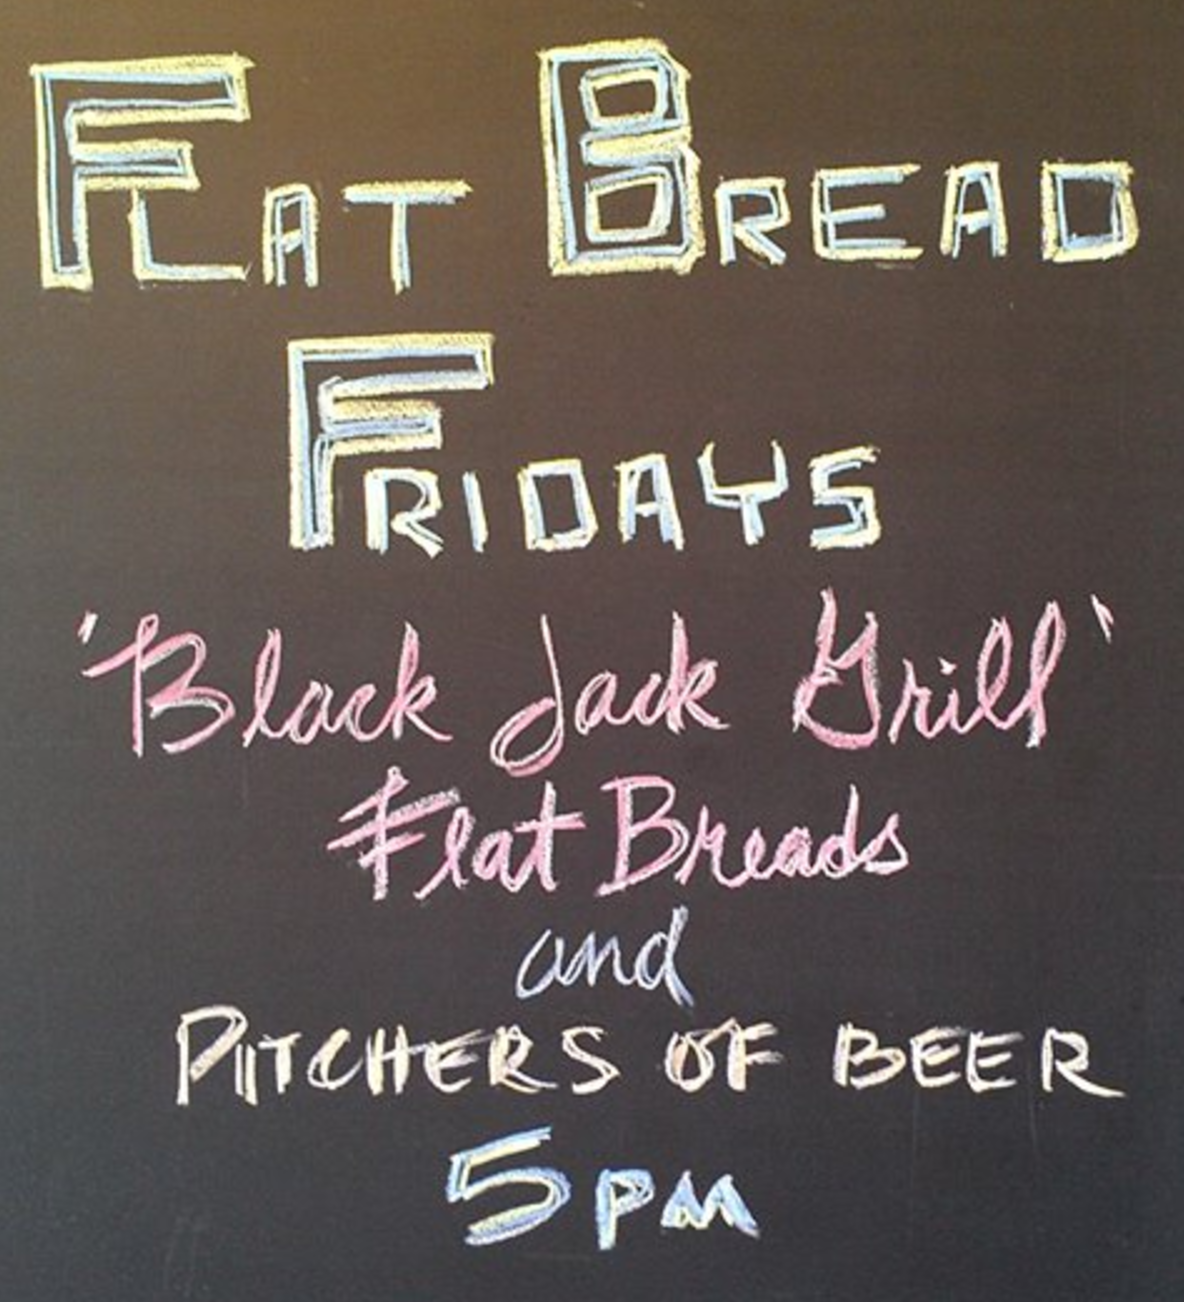 FLAT BREAD
FRIDAYS
'Black Jack Grill'
Flat Breads
and
PITCHERS OF BEER
5 PM